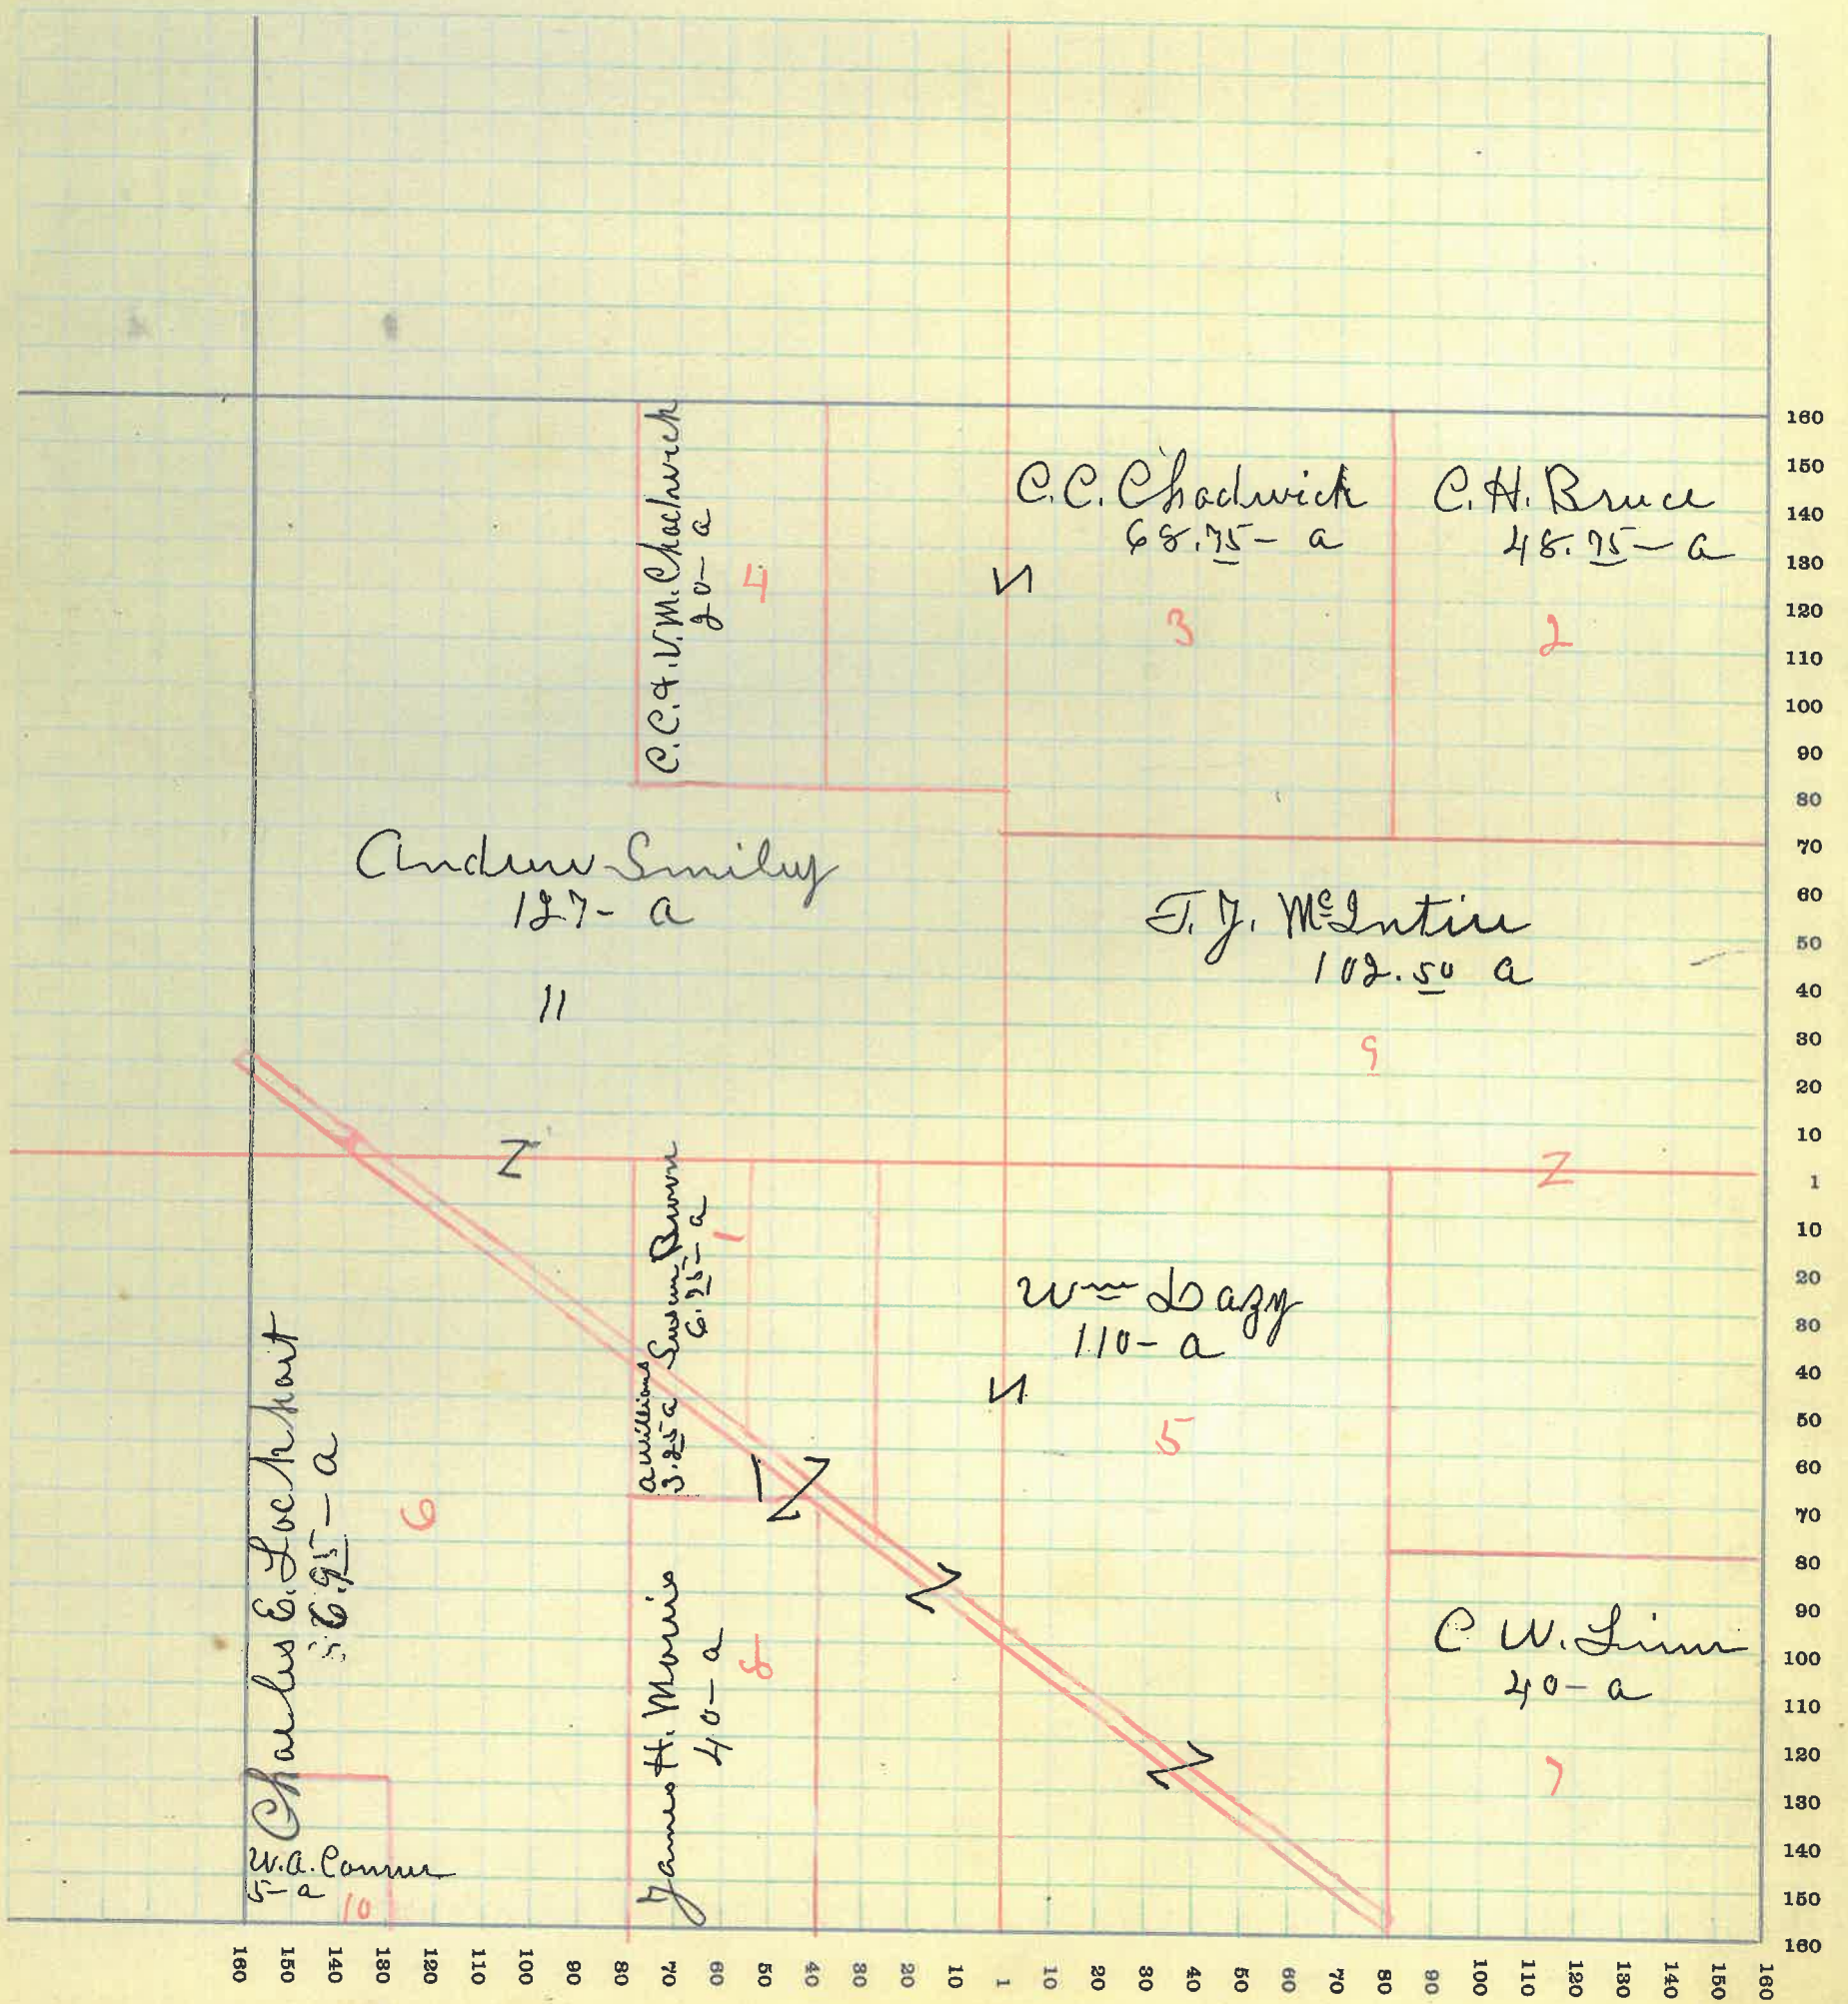 C.C. & V.M. Chadwick
20- a
4
C.C. Chadwick
68.75- a
3
C.H. Bruce
48.75- a
2
Andrew Smiley
127- a
11
T.J. McIntire
102.50 a
9
Susan Brown
6.75- a
1
a williams
3.25 a
Wm Lazy
110- a
5
Charles E. Lockhart
6
James H. Morris
40- a
8
C W. Linn
40- a
7
W.A. Conner
5- a
10
160
150
140
130
120
110
100
90
80
70
60
50
40
30
20
10
1
10
20
30
40
50
60
70
80
90
100
110
120
130
140
150
160
160 150 140 130 120 110 100 90 80 70 60 50 40 30 20 10 1 10 20 30 40 50 60 70 80 90 100 110 120 130 140 150 160